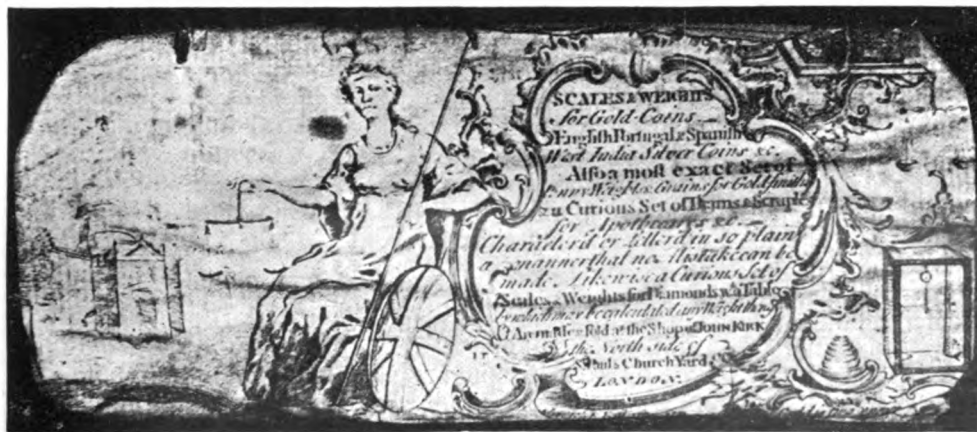 SCALES & WEIGHTS
for Gold-Coins
English Portugal & Spanish
West India Silver Coins &c.
Also a most exact Set of
Penny Weights & Grains for Goldsmiths
a Curious Set of Drams & Scruples
for Apothecarys &c
Character'd or Letter'd in so plain
a manner that no Mistake can be
made. Likewise a Curious Set of
Scales & Weights for Diamonds wth a Table
by which may be calculated any Weight
made & sold at the Shop of JOHN KIRK
the North side of
St Pauls Church Yard
LONDON